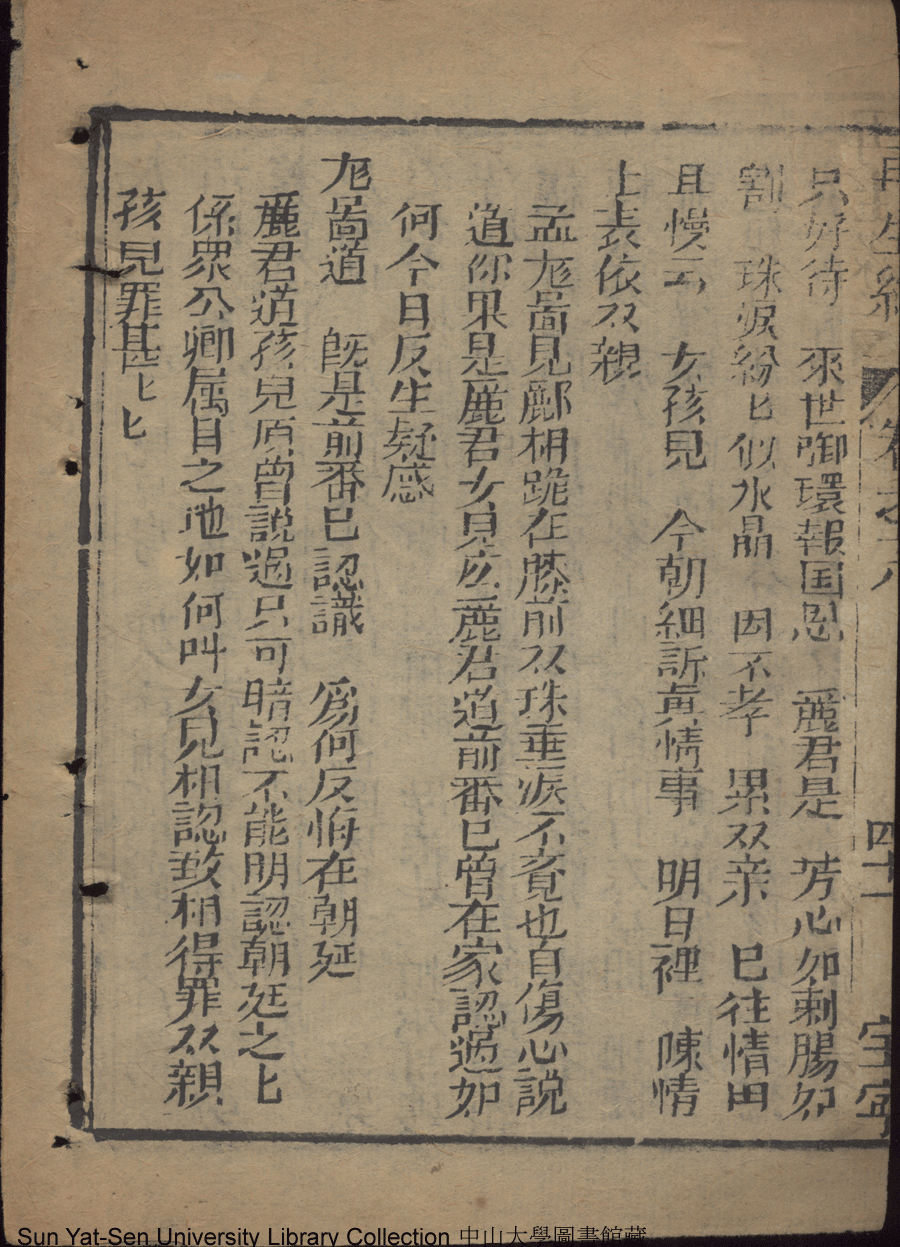 再生緣 卷之八 四十一
只好待 來世啣環報国恩 麗君是 芳心如刺腸如
割 珠淚紛匕似水晶 因不孝 累双亲 已往情田
且慢云 女孩児 今朝細訴真情事 明日裡 陳情
上表依双親
孟尨啚見酈相跪在膝前双珠垂淚不覚也自傷心説
道你果是麗君女児広麗君道前番已曾在家認過如
何今日反生疑惑
尨啚道 既是前番已認識 為何反悔在朝廷
麗君道孩兒原曾説過只可暗認不能明認朝廷之上
係眾公卿属目之地如何叫女児相認致相得罪双親
孩児罪甚匕匕
Sun Yat-Sen University Library Collection 中山大學圖書館藏